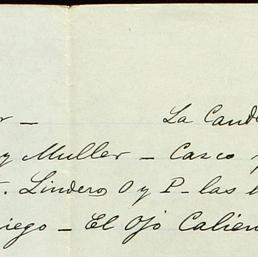 r — La Cand
y Muller — Casco y
. Lindero, O y P — las l
iego — El Ojo Calien